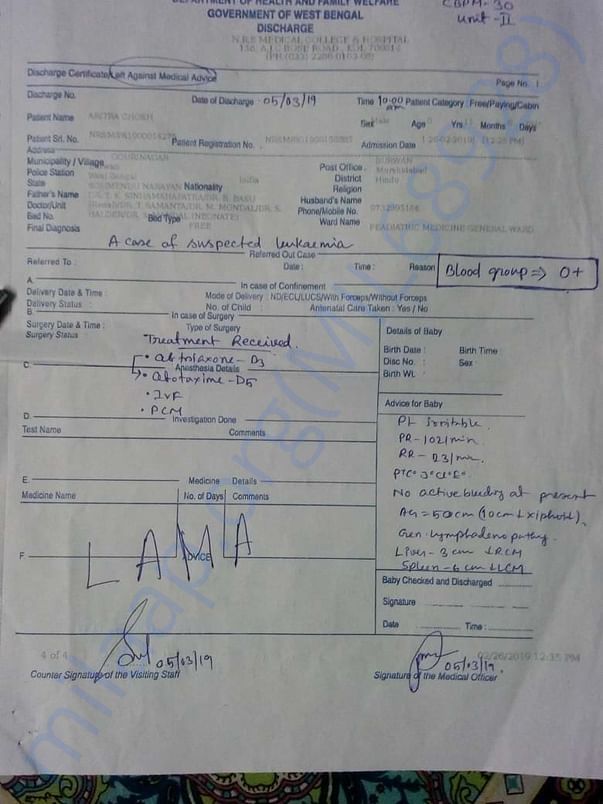 DEPARTMENT OF HEALTH AND FAMILY WELFARE
GOVERNMENT OF WEST BENGAL
DISCHARGE
CBPM-30
Unit-II
N.R.S MEDICAL COLLEGE & HOSPITAL
138, A.J.C BOSE ROAD, KOL 700014
(PH:(033) 2286-0103-08)
Discharge Certificate/Left Against Medical Advice
Page No. 1
Discharge No. Date of Discharge - 05/03/19 Time 10:00 AM Patient Category : Free/Paying/Cabin
Patient Name Sex Age 0 Yrs Months Days
Patient Srl. No. Patient Registration No. Admission Date
Address
Municipality / Village GOURINAGAR Post Office
Police Station District Murshidabad
State West Bengal Nationality India Religion Hindu
Father's Name Husband's Name
Doctor/Unit Phone/Mobile No.
Bed No. Bed Type FREE Ward Name PEADIATRIC MEDICINE GENERAL WARD
Final Diagnosis
A case of suspected leukaemia
Referred Out Case
Referred To : Date : Time : Reason
Blood group => O+
A. In case of Confinement
Delivery Date & Time : Mode of Delivery : ND/ECL/LUCS/With Forceps/Without Forceps
Delivery Status : No. of Child : Antenatal Care Taken : Yes / No
B. In case of Surgery
Surgery Date & Time : Type of Surgery
Surgery Status
Treatment Received.
C. Anesthesia Details
D3
D5
• IVF
• PCM
D. Investigation Done
Test Name Comments
E. Medicine Details
Medicine Name No. of Days Comments
F. ADVICE
LAMA
Details of Baby
Birth Date : Birth Time :
Disc No. : Sex
Birth Wt. :
Advice for Baby
Pt irritable.
PR- 102/min.
RR - 23/min.
No active bleeding at present
AG = 50cm (10cm ↓ xiphoid).
Gen. lymphadenopathy.
Liver - 3 cm ↓RCM
Spleen - 6 cm ↓LCM
Baby Checked and Discharged
Signature
Date Time :
4 of 4
05/03/19
Counter Signature of the Visiting Staff
02/26/2019 12:35 PM
05/03/19.
Signature of the Medical Officer